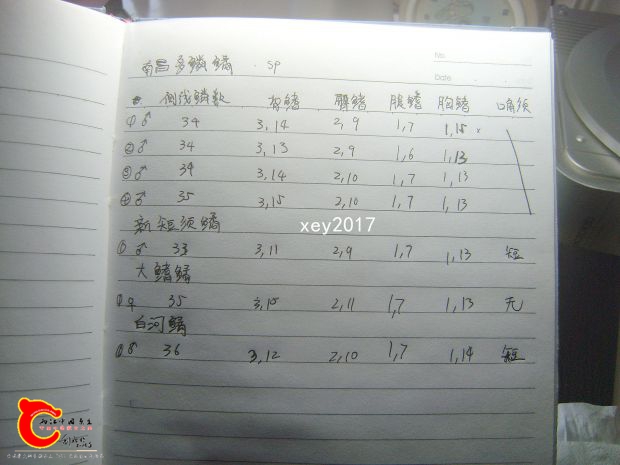 No.
Date
南昌多鳞鱊 . sp
# 侧线鳞数 背鳍 臀鳍 腹鳍 胸鳍 口角须
①♂ 34 3,14 2,9 1,7 1,15 x
②♂ 34 3,13 2,9 1,6 1,13
③♂ 34 3,14 2,10 1,7 1,13
④♂ 35 3,15 2,10 1,7 1,13
xey2017
新短须鱊
①♂ 33 3,11 2,9 1,7 1,13 短
大鳍鱊
①♀ 35 3,15 2,11 1,7 1,13 无
白河鱊
①♂ 36 3,12 2,10 1,7 1,14 短